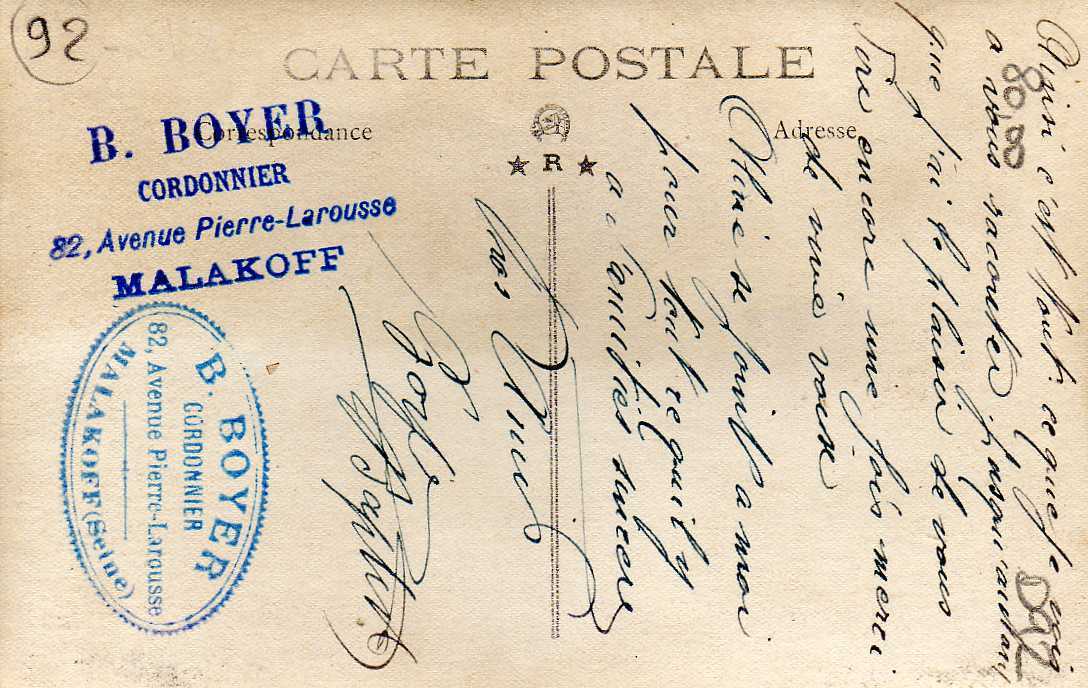 92
CARTE POSTALE
Correspondance
Adresse
R
B. BOYER
CORDONNIER
82, Avenue Pierre-Larousse
MALAKOFF
B. BOYER
CORDONNIER
82, Avenue Pierre-Larousse
MALAKOFF (Seine)
8008
c'est tout ce que je
a vous raconter
que j'ai le plaisir de vous
lire encore une fois merci
de
se joint a moi
pour tout ce qu'il y
a d'amitiés sincere
Vos Amis
Boyer
Baptiste